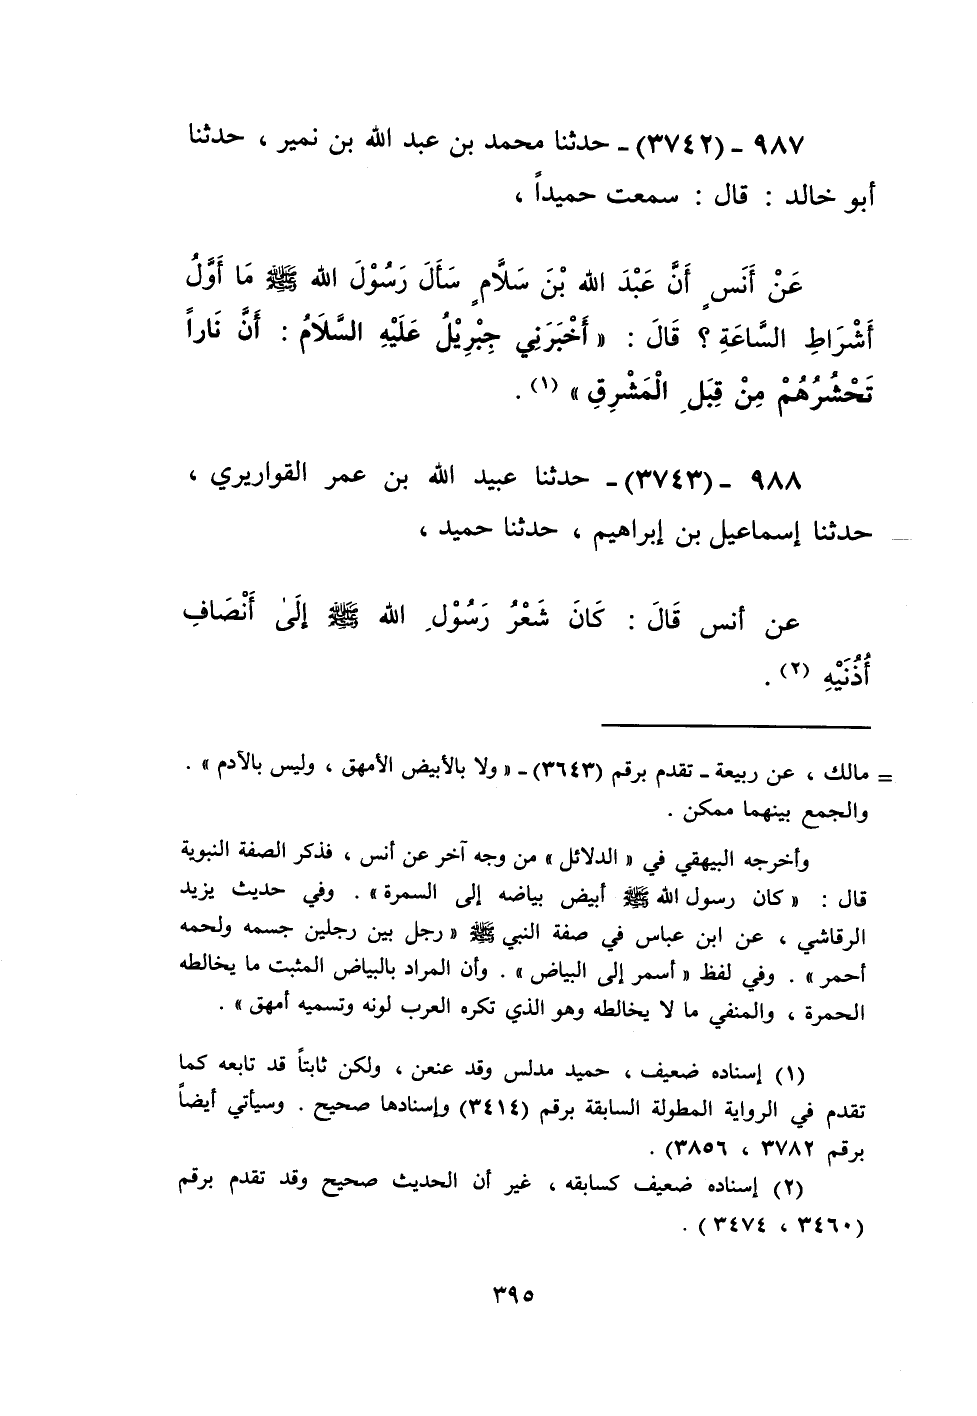 ٩٨٧ - (٣٧٤٢) - حدثنا محمد بن عبد الله بن نمير ، حدثنا
أبو خالد : قال : سمعت حميداً ،
عَنْ أَنَسٍ أَنَّ عَبْدَ الله بْنَ سَلَّامٍ سَأَلَ رَسُوْلَ الله ﷺ مَا أَوَّلُ
أَشْرَاطِ السَّاعَةِ ؟ قَالَ : « أَخْبَرَنِي جِبْرِيْلُ عَلَيْهِ السَّلَامُ : أَنَّ نَاراً
تَحْشُرُهُمْ مِنْ قِبَلِ الْمَشْرِقِ » (١) .
٩٨٨ - (٣٧٤٣) - حدثنا عبيد الله بن عمر القواريري ،
حدثنا إسماعيل بن إبراهيم ، حدثنا حميد ،
عن أنس قَالَ : كَانَ شَعْرُ رَسُوْلِ الله ﷺ إِلَىٰ أَنْصَافِ
أُذُنَيْهِ (٢) .
= مالك ، عن ربيعة - تقدم برقم (٣٦٤٣) - « ولا بالأبيض الأمهق ، وليس بالآدم » .
والجمع بينهما ممكن .
وأخرجه البيهقي في « الدلائل » من وجه آخر عن أنس ، فذكر الصفة النبوية
قال : « كان رسول الله ﷺ أبيض بياضه إلى السمرة » . وفي حديث يزيد
الرقاشي ، عن ابن عباس في صفة النبي ﷺ « رجل بين رجلين جسمه ولحمه
أحمر » . وفي لفظ « أسمر إلى البياض » . وأن المراد بالبياض المثبت ما يخالطه
الحمرة ، والمنفي ما لا يخالطه وهو الذي تكره العرب لونه وتسميه أمهق » .
(١) إسناده ضعيف ، حميد مدلس وقد عنعن ، ولكن ثابتاً قد تابعه كما
تقدم في الرواية المطولة السابقة برقم (٣٤١٤) وإسنادها صحيح . وسيأتي أيضاً
برقم ٣٧٨٢ ، ٣٨٥٦) .
(٢) إسناده ضعيف كسابقه ، غير أن الحديث صحيح وقد تقدم برقم
(٣٤٦٠ ، ٣٤٧٤) .
٣٩٥